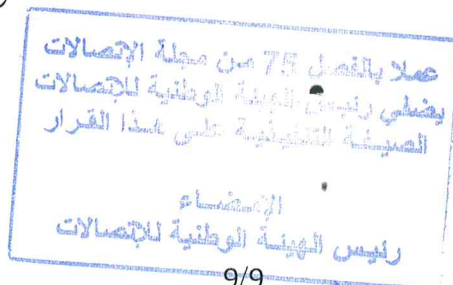 عملا بالفصل 75 من مجلة الإتصالات
يمضي رئيس الهيئة الوطنية للإتصالات
الصيغة التنفيذية على هذا القرار
الإمضاء
رئيس الهيئة الوطنية للإتصالات
9/9